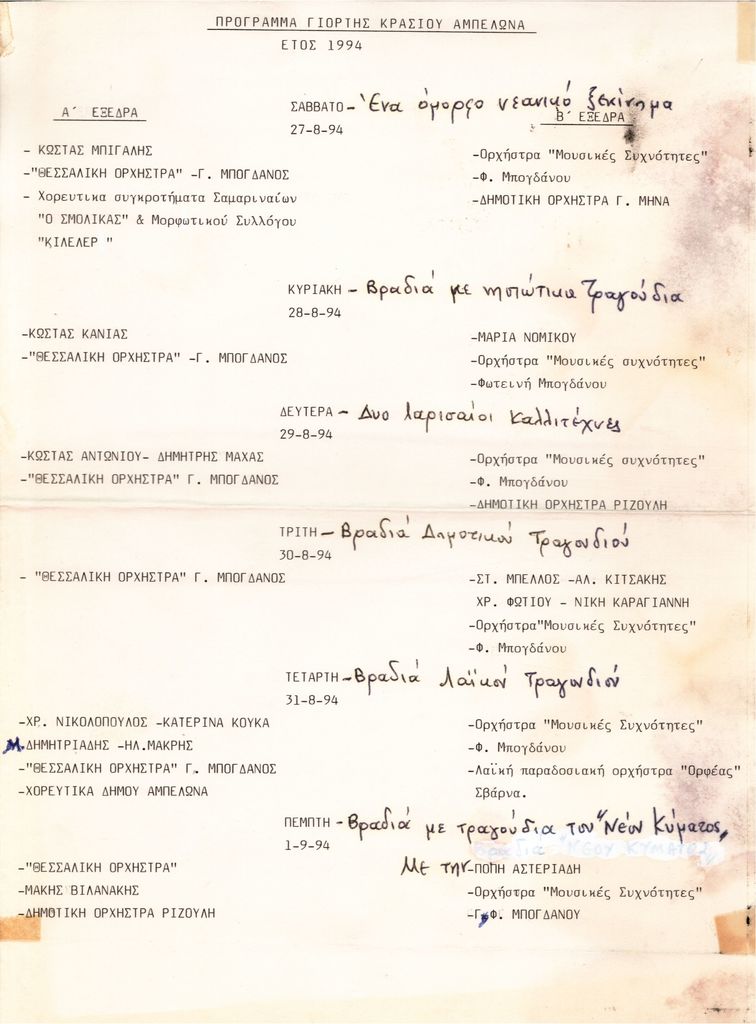 ΠΡΟΓΡΑΜΜΑ ΓΙΟΡΤΗΣ ΚΡΑΣΙΟΥ ΑΜΠΕΛΩΝΑ
ΕΤΟΣ 1994
ΣΑΒΒΑΤΟ - Ένα όμορφο νεανικό ξεκίνημα
27-8-94
Α΄ ΕΞΕΔΡΑ
Β΄ ΕΞΕΔΡΑ
- ΚΩΣΤΑΣ ΜΠΙΓΑΛΗΣ
-"ΘΕΣΣΑΛΙΚΗ ΟΡΧΗΣΤΡΑ" -Γ. ΜΠΟΓΔΑΝΟΣ
- Χορευτικα συγκροτήματα Σαμαριναίων
"Ο ΣΜΟΛΙΚΑΣ" & Μορφωτικού Συλλόγου
"ΚΙΛΕΛΕΡ "
-Ορχήστρα "Μουσικές Συχνότητες"
-Φ. Μπογδάνου
-ΔΗΜΟΤΙΚΗ ΟΡΧΗΣΤΡΑ Γ. ΜΗΝΑ
ΚΥΡΙΑΚΗ - Βραδιά με νησιώτικα Τραγούδια
28-8-94
-ΚΩΣΤΑΣ ΚΑΝΙΑΣ
-"ΘΕΣΣΑΛΙΚΗ ΟΡΧΗΣΤΡΑ" -Γ. ΜΠΟΓΔΑΝΟΣ
-ΜΑΡΙΑ ΝΟΜΙΚΟΥ
-Ορχήστρα "Μουσικές συχνότητες"
-Φωτεινή Μπογδάνου
ΔΕΥΤΕΡΑ - Δυο λαρισαίοι Καλλιτέχνες
29-8-94
-ΚΩΣΤΑΣ ΑΝΤΩΝΙΟΥ- ΔΗΜΗΤΡΗΣ ΜΑΧΑΣ
-"ΘΕΣΣΑΛΙΚΗ ΟΡΧΗΣΤΡΑ" Γ. ΜΠΟΓΔΑΝΟΣ
-Ορχήστρα "Μουσικές συχνότητες"
-Φ. Μπογδάνου
-ΔΗΜΟΤΙΚΗ ΟΡΧΗΣΤΡΑ ΡΙΖΟΥΛΗ
ΤΡΙΤΗ - Βραδιά Δημοτικού Τραγουδιού
30-8-94
- "ΘΕΣΣΑΛΙΚΗ ΟΡΧΗΣΤΡΑ" Γ. ΜΠΟΓΔΑΝΟΣ
-ΣΤ. ΜΠΕΛΛΟΣ -ΑΛ. ΚΙΤΣΑΚΗΣ
ΧΡ. ΦΩΤΙΟΥ - ΝΙΚΗ ΚΑΡΑΓΙΑΝΝΗ
-Ορχήστρα"Μουσικές Συχνότητες"
-Φ. Μπογδάνου
ΤΕΤΑΡΤΗ - Βραδιά Λαϊκού Τραγουδιού
31-8-94
-ΧΡ. ΝΙΚΟΛΟΠΟΥΛΟΣ -ΚΑΤΕΡΙΝΑ ΚΟΥΚΑ
Μ.ΔΗΜΗΤΡΙΑΔΗΣ -ΗΛ.ΜΑΚΡΗΣ
-"ΘΕΣΣΑΛΙΚΗ ΟΡΧΗΣΤΡΑ" Γ. ΜΠΟΓΔΑΝΟΣ
-ΧΟΡΕΥΤΙΚΑ ΔΗΜΟΥ ΑΜΠΕΛΩΝΑ
-Ορχήστρα "Μουσικές Συχνότητες"
-Φ. Μπογδάνου
-Λαϊκή παραδοσιακή ορχήστρα "Ορφέας"
Σβάρνα.
ΠΕΜΠΤΗ - Βραδιά με τραγούδια του "Νέου Κύματος,,
1-9-94
Βραδιά "ΝΕΟΥ ΚΥΜΑΤΟΣ"
-"ΘΕΣΣΑΛΙΚΗ ΟΡΧΗΣΤΡΑ"
-ΜΑΚΗΣ ΒΙΛΑΝΑΚΗΣ
-ΔΗΜΟΤΙΚΗ ΟΡΧΗΣΤΡΑ ΡΙΖΟΥΛΗ
Με την -ΠΟΠΗ ΑΣΤΕΡΙΑΔΗ
-Ορχήστρα "Μουσικές Συχνότητες"
-Γ,Φ. ΜΠΟΓΔΑΝΟΥ